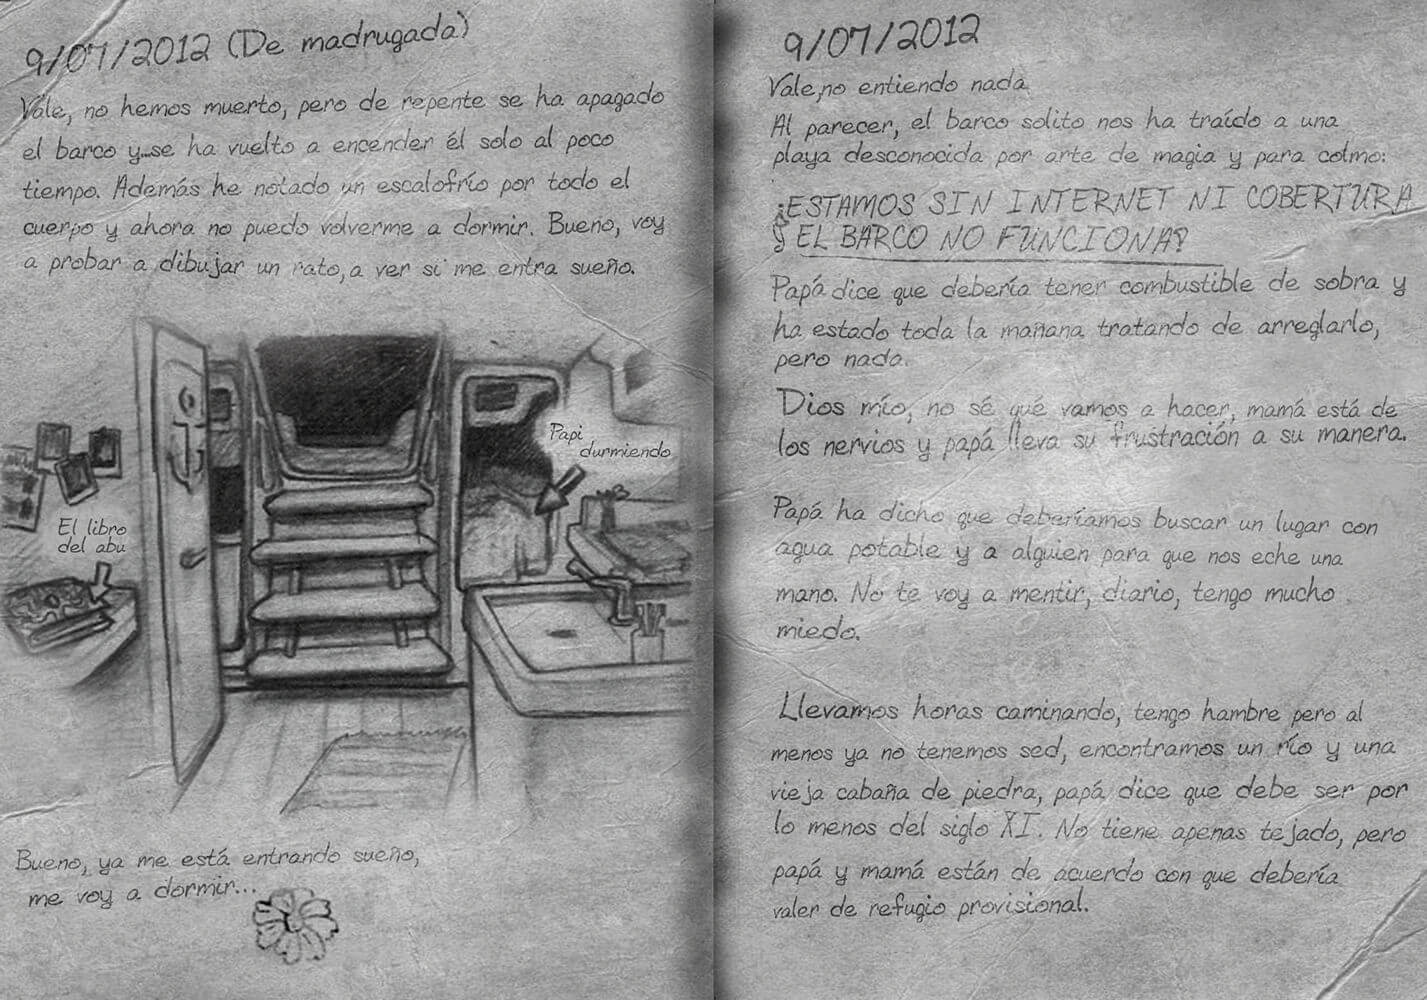 9/07/2012 (De madrugada)
Vale, no hemos muerto, pero de repente se ha apagado
el barco y...se ha vuelto a encender él solo al poco
tiempo. Además he notado un escalofrío por todo el
cuerpo y ahora no puedo volverme a dormir. Bueno, voy
a probar a dibujar un rato, a ver si me entra sueño.
Papi
durmiendo
El libro
del abu
Bueno, ya me está entrando sueño,
me voy a dormir...
9/07/2012
Vale, no entiendo nada.
Al parecer, el barco solito nos ha traído a una
playa desconocida por arte de magia y para colmo:
¡ESTAMOS SIN INTERNET NI COBERTURA
y EL BARCO NO FUNCIONA?
Papá dice que debería tener combustible de sobra y
ha estado toda la mañana tratando de arreglarlo,
pero nada.
Dios mío, no sé qué vamos a hacer, mamá está de
los nervios y papá lleva su frustración a su manera.
Papá ha dicho que deberíamos buscar un lugar con
agua potable y a alguien para que nos eche una
mano. No te voy a mentir, diario, tengo mucho
miedo.
Llevamos horas caminando, tengo hambre pero al
menos ya no tenemos sed, encontramos un río y una
vieja cabaña de piedra, papá dice que debe ser por
lo menos del siglo XI. No tiene apenas tejado, pero
papá y mamá están de acuerdo con que debería
valer de refugio provisional.